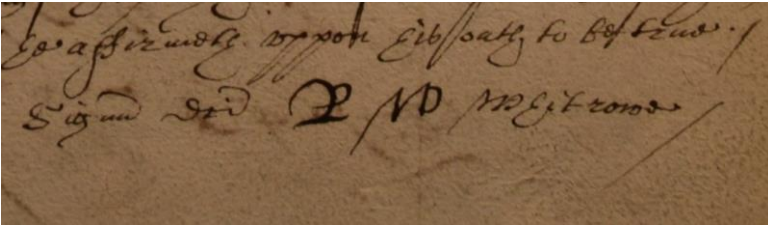 he affirmeth uppon his oath to be true
Signū dcī R W Whitrowe